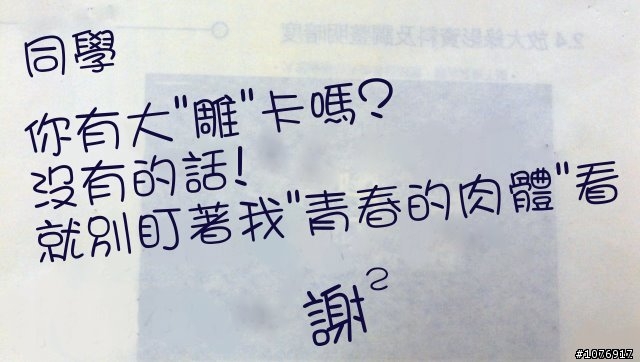 2.4 放大錄影資料及調整明暗度
同學
你有大"雕"卡嗎?
沒有的話!
就別盯著我"青春的肉體"看
謝2
#1076917